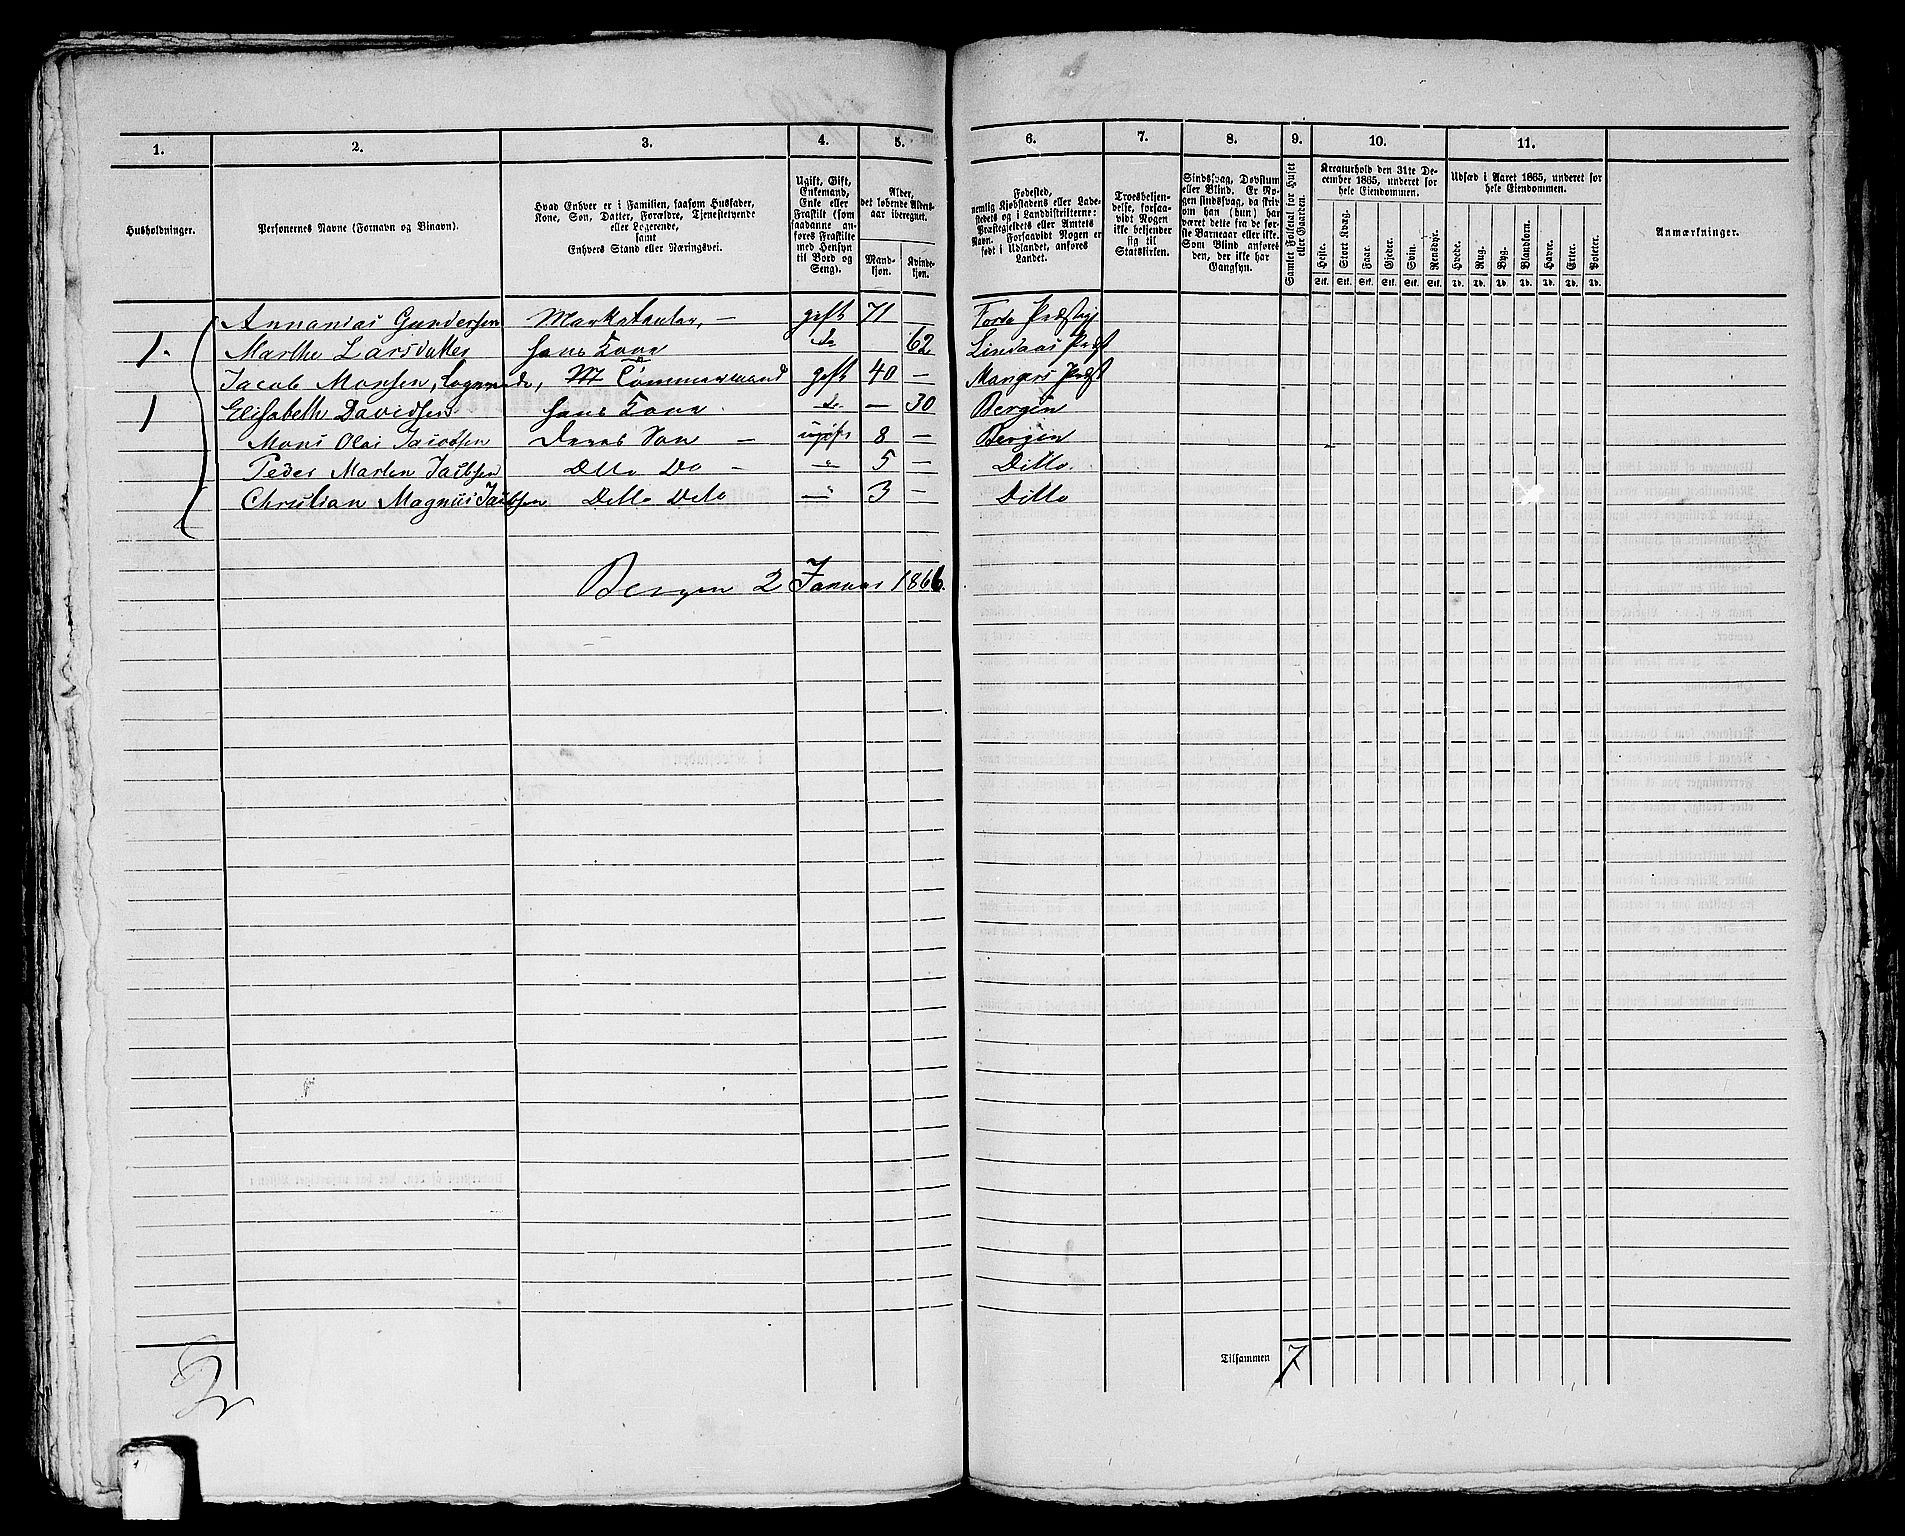 1. 2. 3. 4. 5. 6. 7. 8. 9. 10. 11.
Husholdninger.
Personernes Navne (Fornavn og Binavn).
Hvad Enhver er i Familien, saasom Husfader,
Kone, Søn, Datter, Forældre, Tjenestetyende
eller Logerende,
samt
Enhvers Stand eller Næringsvei.
Ugift, Gift,
Enkemand,
Enke eller
Fraskilt (som
saadanne an-
føres Fraskilte
med Hensyn
til Bord og
Seng).
Alder,
det løbende Alders-
aar iberegnet.
Mand-
kjøn.
Kvinde-
kjøn.
Fødested,
nemlig Kjøbstadens eller Lade-
stedets og i Landdistrikterne:
Præstegjeldets eller Amtets
Navn. Forsaavidt Nogen er
født i Udlandet, anføres
Landet.
Troesbekjen-
delse, forsaa-
vidt Nogen
ikke bekjender
sig til
Statskirken.
Sindssvag, Døvstum
eller Blind. Er No-
gen sindssvag, da skriv
om han (hun) har
været dette fra de før-
ste Barneaar eller ikke.
Som Blind anføres
den, der ikke har
Gangsyn.
Samlet Folketal for Huset
eller Gaarden.
Kreaturhold den 31te De-
cember 1865, underet for
hele Eiendommen.
Heste. Stort Kvæg. Faar. Gjeder. Svin. Rensdyr.
Stk. Stk. Stk. Stk. Stk. Stk.
Udsæd i Aaret 1865, underet for
hele Eiendommen.
Hvede. Rug. Byg. Blandkorn. Havre. Erter. Poteter.
Td. Td. Td. Td. Td. Td. Td.
Anmærkninger.
Annanias Gundersen — gift 71 —
1. Marthe Larsdatter hans Kone do 62 Lindaas Præst
Jacob Monsen, Logerende, gift 40 — Mangers Præst
1 Elisabeth Davidsen hans Kone do — 30 Bergen
Mons Olai Jacobsen Deres Søn — ugift 8 — Bergen
Peder Martin Jacobsen Ditto Do — 5 — Ditto
Christian Magnus Jacobsen Ditto Dito 3 — Ditto
Bergen 2 Januar 1866.
Tilsammen 7